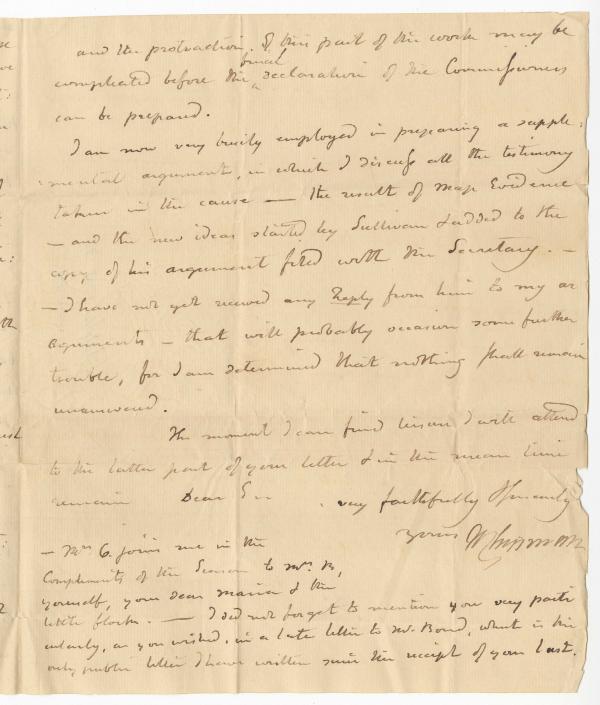 and the protraction of this part of the work may be
complicated before the final declaration of the Commissioners
can be prepared.
I am now very busily employed in preparing a supple:
:mental argument, in which I discuss all the testimony
taken in the cause — the result of Map Evidence
— and the new ideas started by Sullivan & added to the
copy of his argument filed with the Secretary. —
— I have not yet received any Reply from him to my ar
guments — that will probably occasion some further
trouble, for I am determined that nothing shall remain
unanswered.
The moment I can find leisure I will attend
to the latter part of your letter & in the mean time
remain Dear Sir very faithfully & sincerely
yours W Chipman
— Mrs C. joins me in the
Compliments of the Season to Mrs. B,
yourself, your dear Maria & the
little flock. — I did not forget to mention you very parti
cularly, as you wished, in a late letter to Mr. Bond, which is the
only public letter I have written since the receipt of your last.